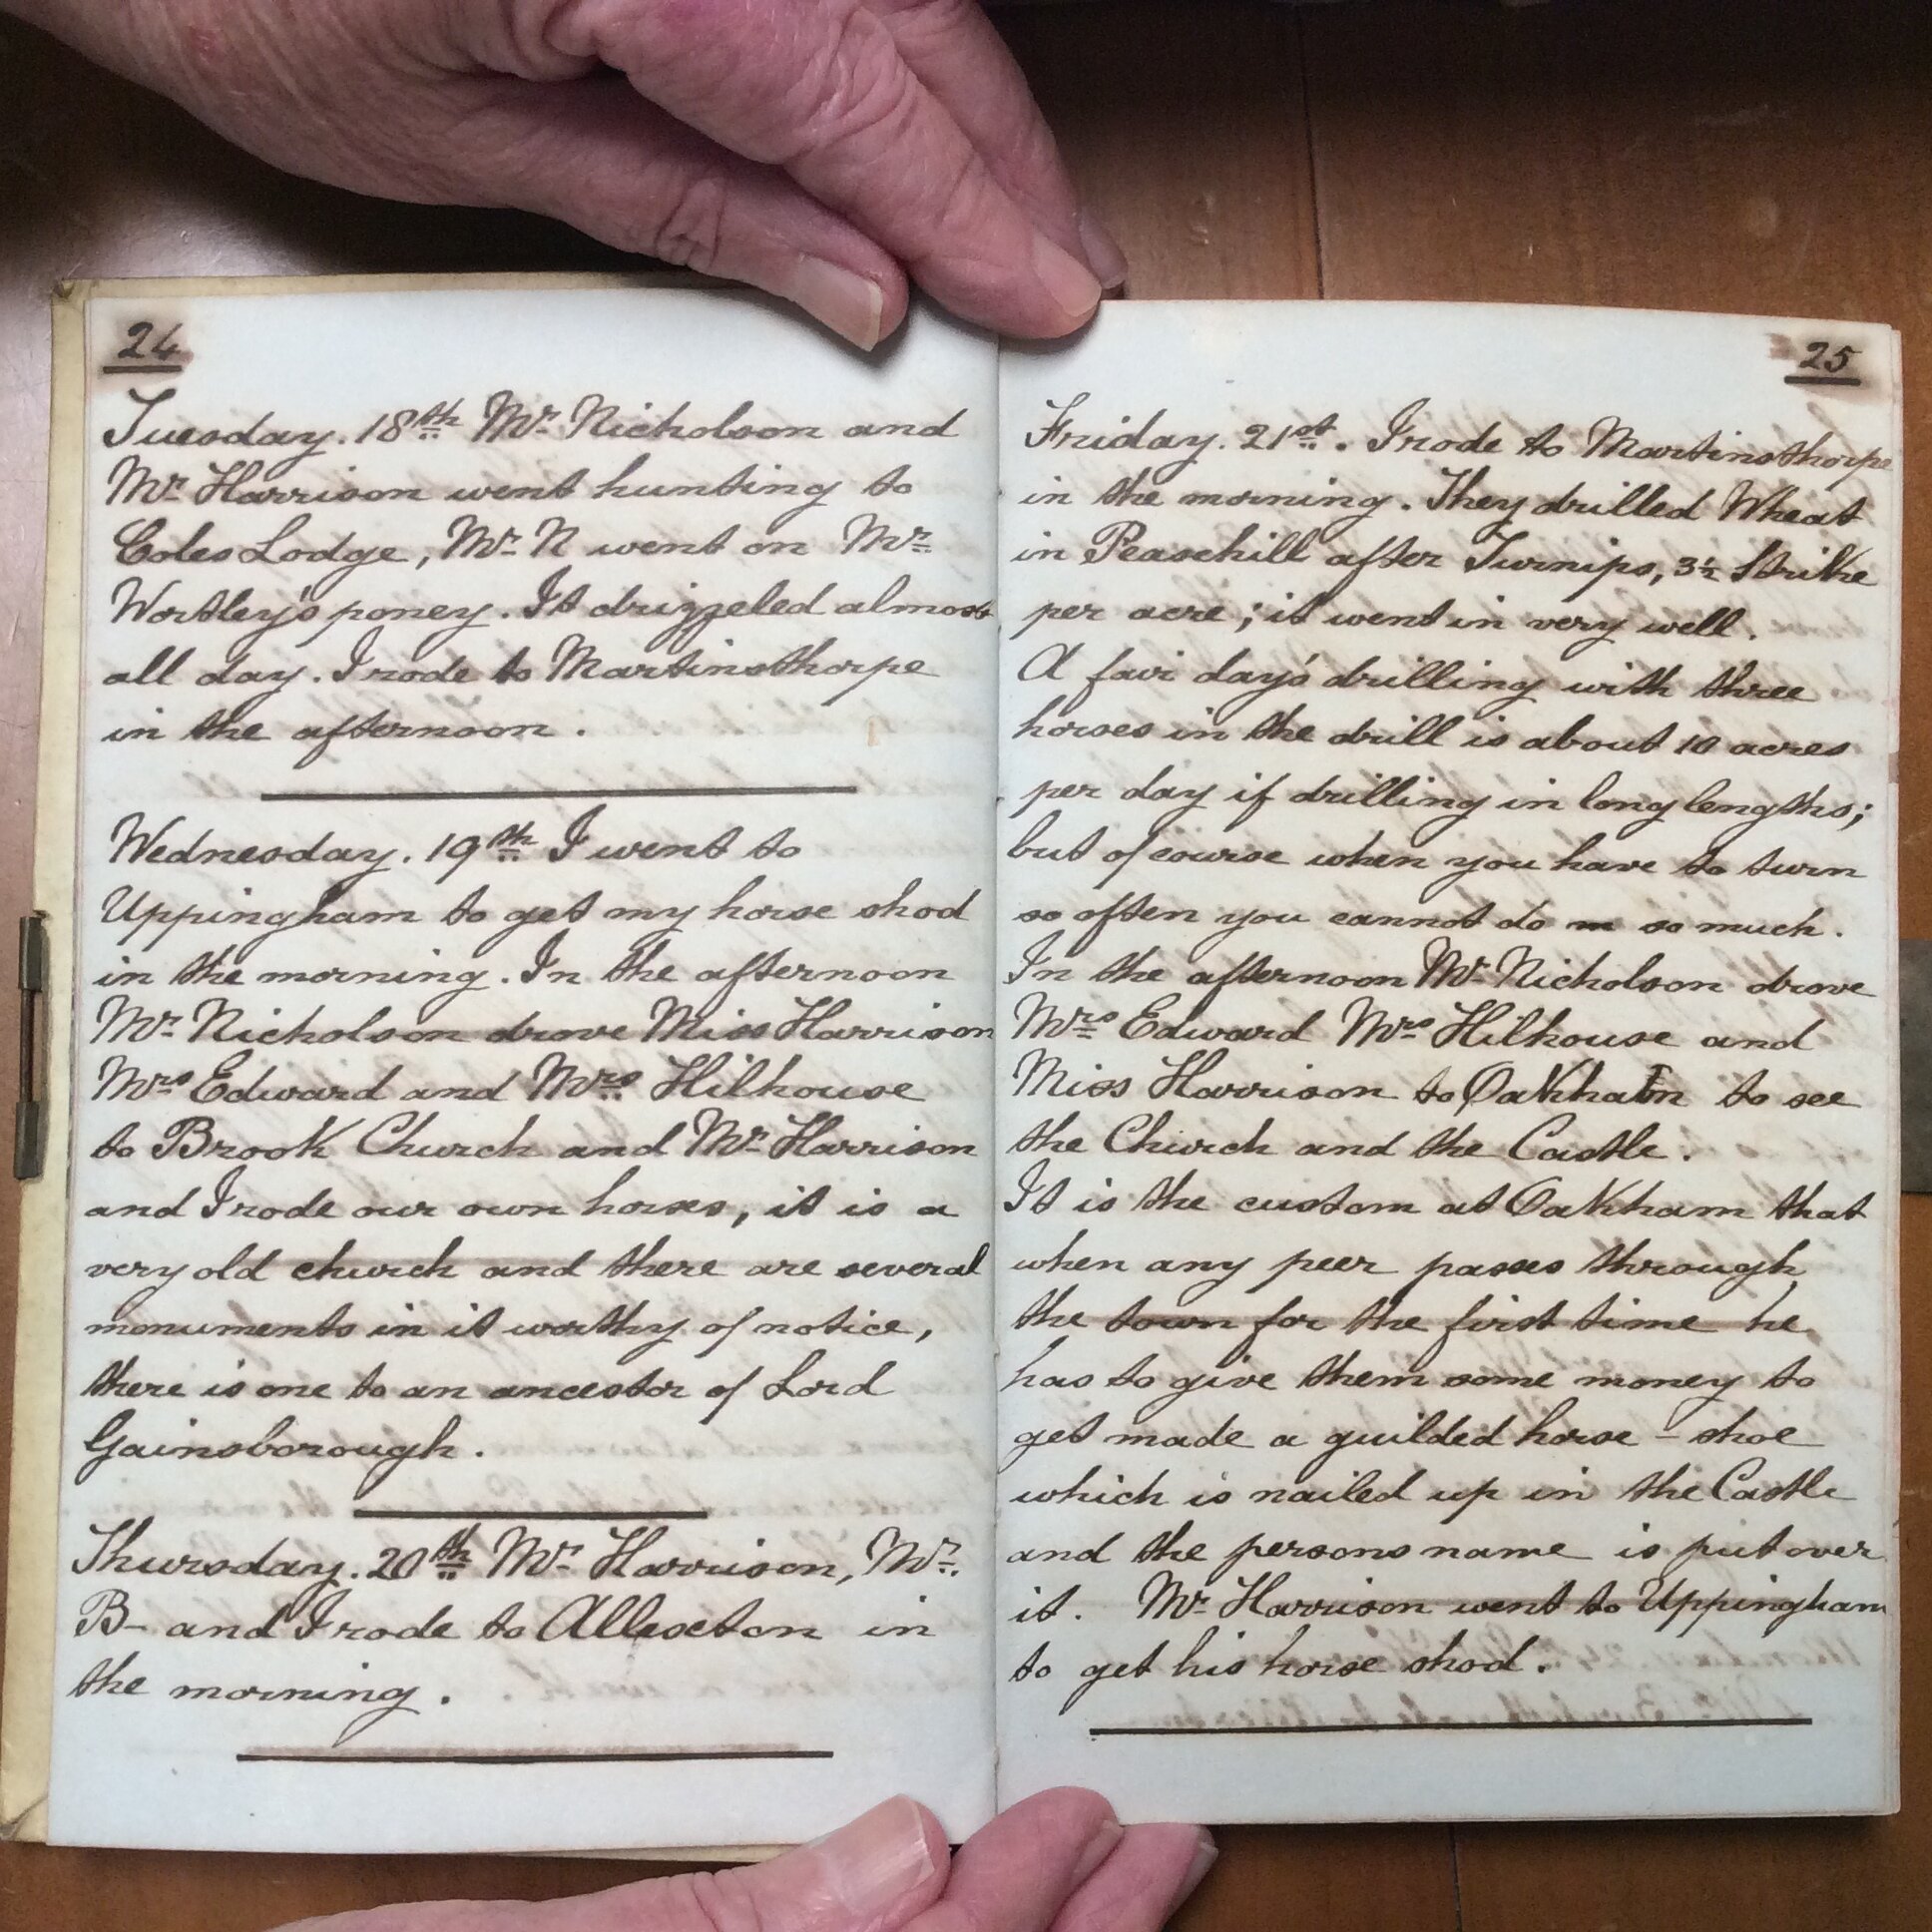 24
Tuesday. 18th Mr Nicholson and
Mr Harrison went hunting to
Coles Lodge, Mr N went on Mr
Wortley's poney. It drizzeled almost
all day. I rode to Martinsthorpe
in the afternoon.
Wednesday. 19th I went to
Uppingham to get my horse shod
in the morning. In the afternoon
Mr Nicholson drove Miss Harrison
Mrs Edward and Mrs Hilhouse
to Brook Church and Mr Harrison
and I rode our own horses, it is a
very old church and there are several
monuments in it worthy of notice,
there is one to an ancestor of Lord
Gainsborough.
Thursday. 20th Mr Harrison, Mr
B- and I rode to Allexton in
the morning.
25
Friday. 21st. I rode to Martinsthorpe
in the morning. They drilled Wheat
in Peasehill after Turnips, 3½ Strike
per acre; it went in very well.
A fair day's drilling with three
horses in the drill is about 10 acres
per day if drilling in long lengths;
but of course when you have to turn
so often you cannot do m so much.
In the afternoon Mr Nicholson drove
Mrs Edward Mrs Hilhouse and
Miss Harrison to Oakham to see
the Church and the Castle.
It is the custom at Oakham that
when any peer passes through
the town for the first time he
has to give them some money to
get made a guilded horse-shoe
which is nailed up in the Castle
and the persons name is put over
it. Mr Harrison went to Uppingham
to get his horse shod.